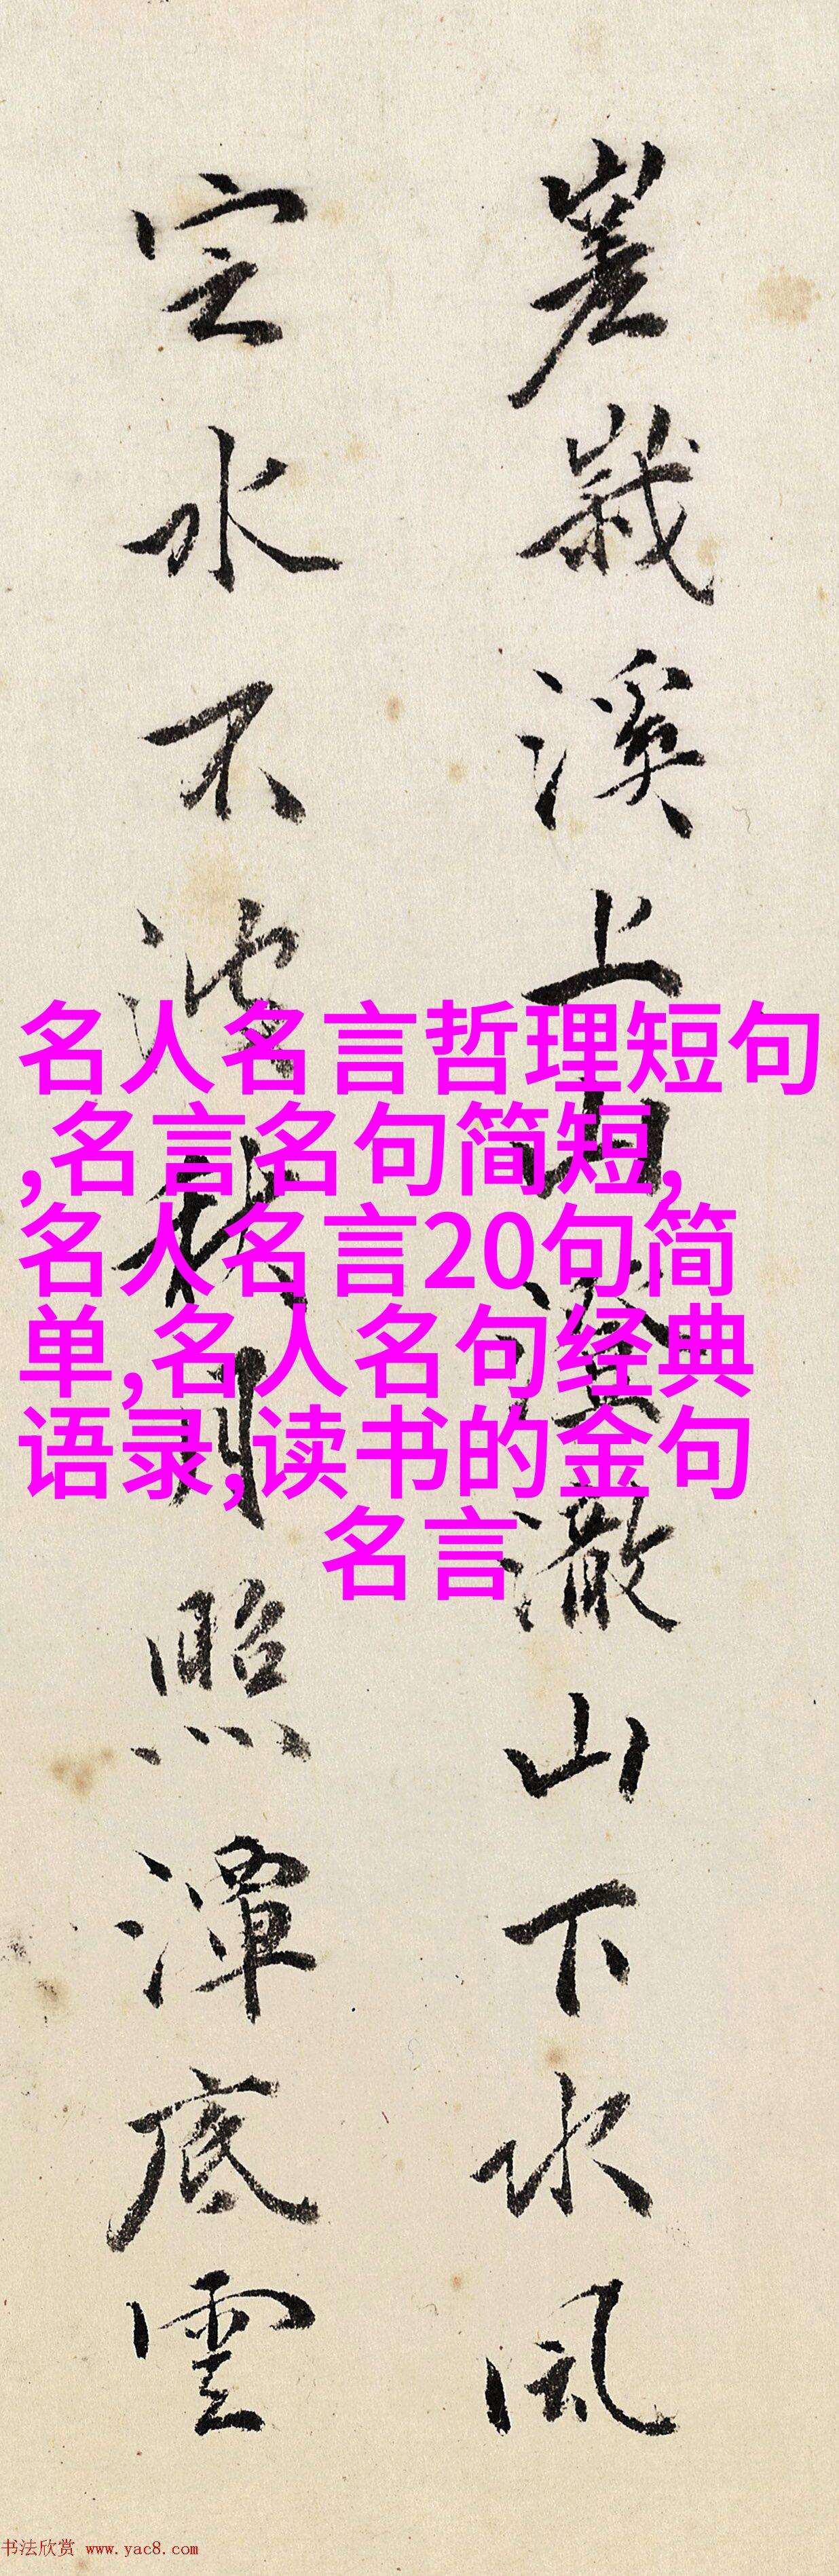 嵳峩溪上山澄澈山下水風
定水不月照潭底雲
名人名言哲理短句
,名言名句简短,
名人名言20句简
单,名人名句经典
语录,读书的金句
名言
书法欣赏 www.yac8.com